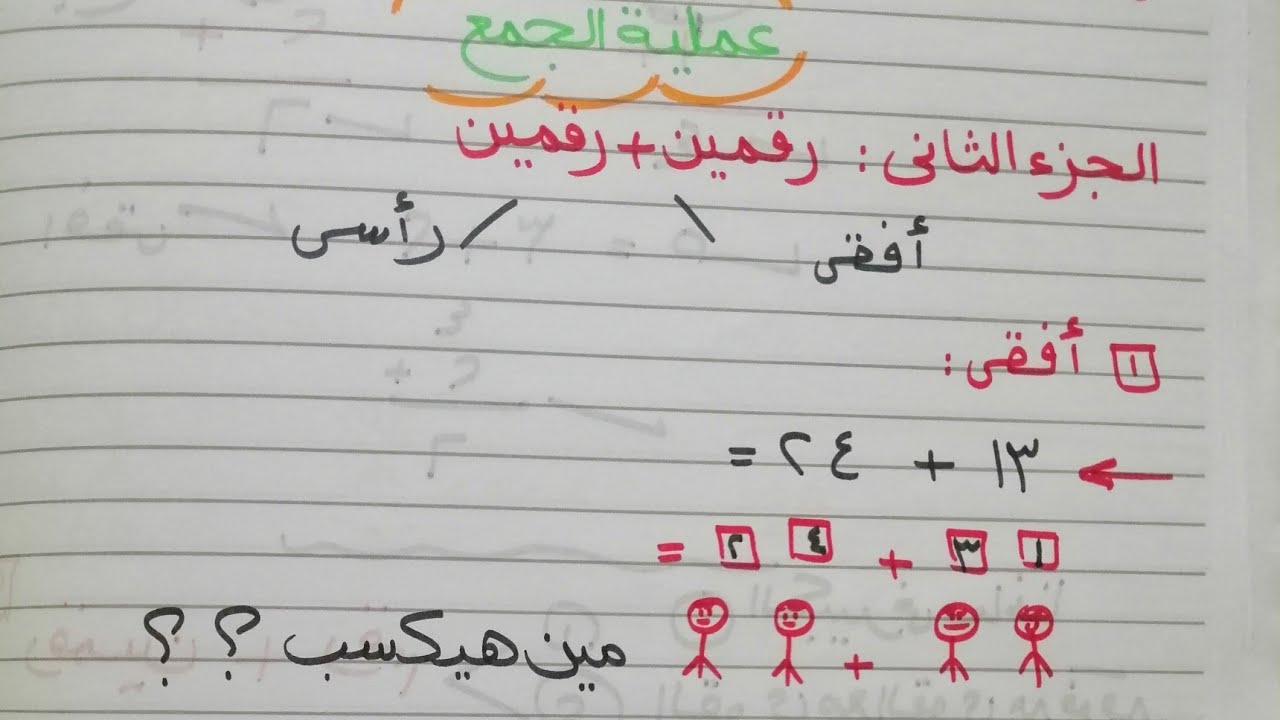 عملية الجمع
الجزء الثانى : رقمين + رقمين
أفقى \ / رأسى
١ أفقى :
١٣ + ٢٤ =
١ ٣ + ٤ ٢ =
+ مين هيكسب ؟ ؟